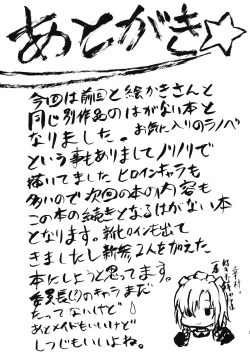 あとがき☆
今回は前回と絵かきさんと
同じ別作品のはがない本と
なりました。お気に入りのラノベ
という事もありましてノリノリで
描いてました ヒロインキャラも
多いので次回の本の内容も
この本の続きとなるはがない本
となります。新ヒロインも出て
きましたし新参2人をがえた
本にしようと思ってます。
委員長(?)のキャラまだ
たってないけど
あとメイドもいいけど
しつじもいいよね。
幸村